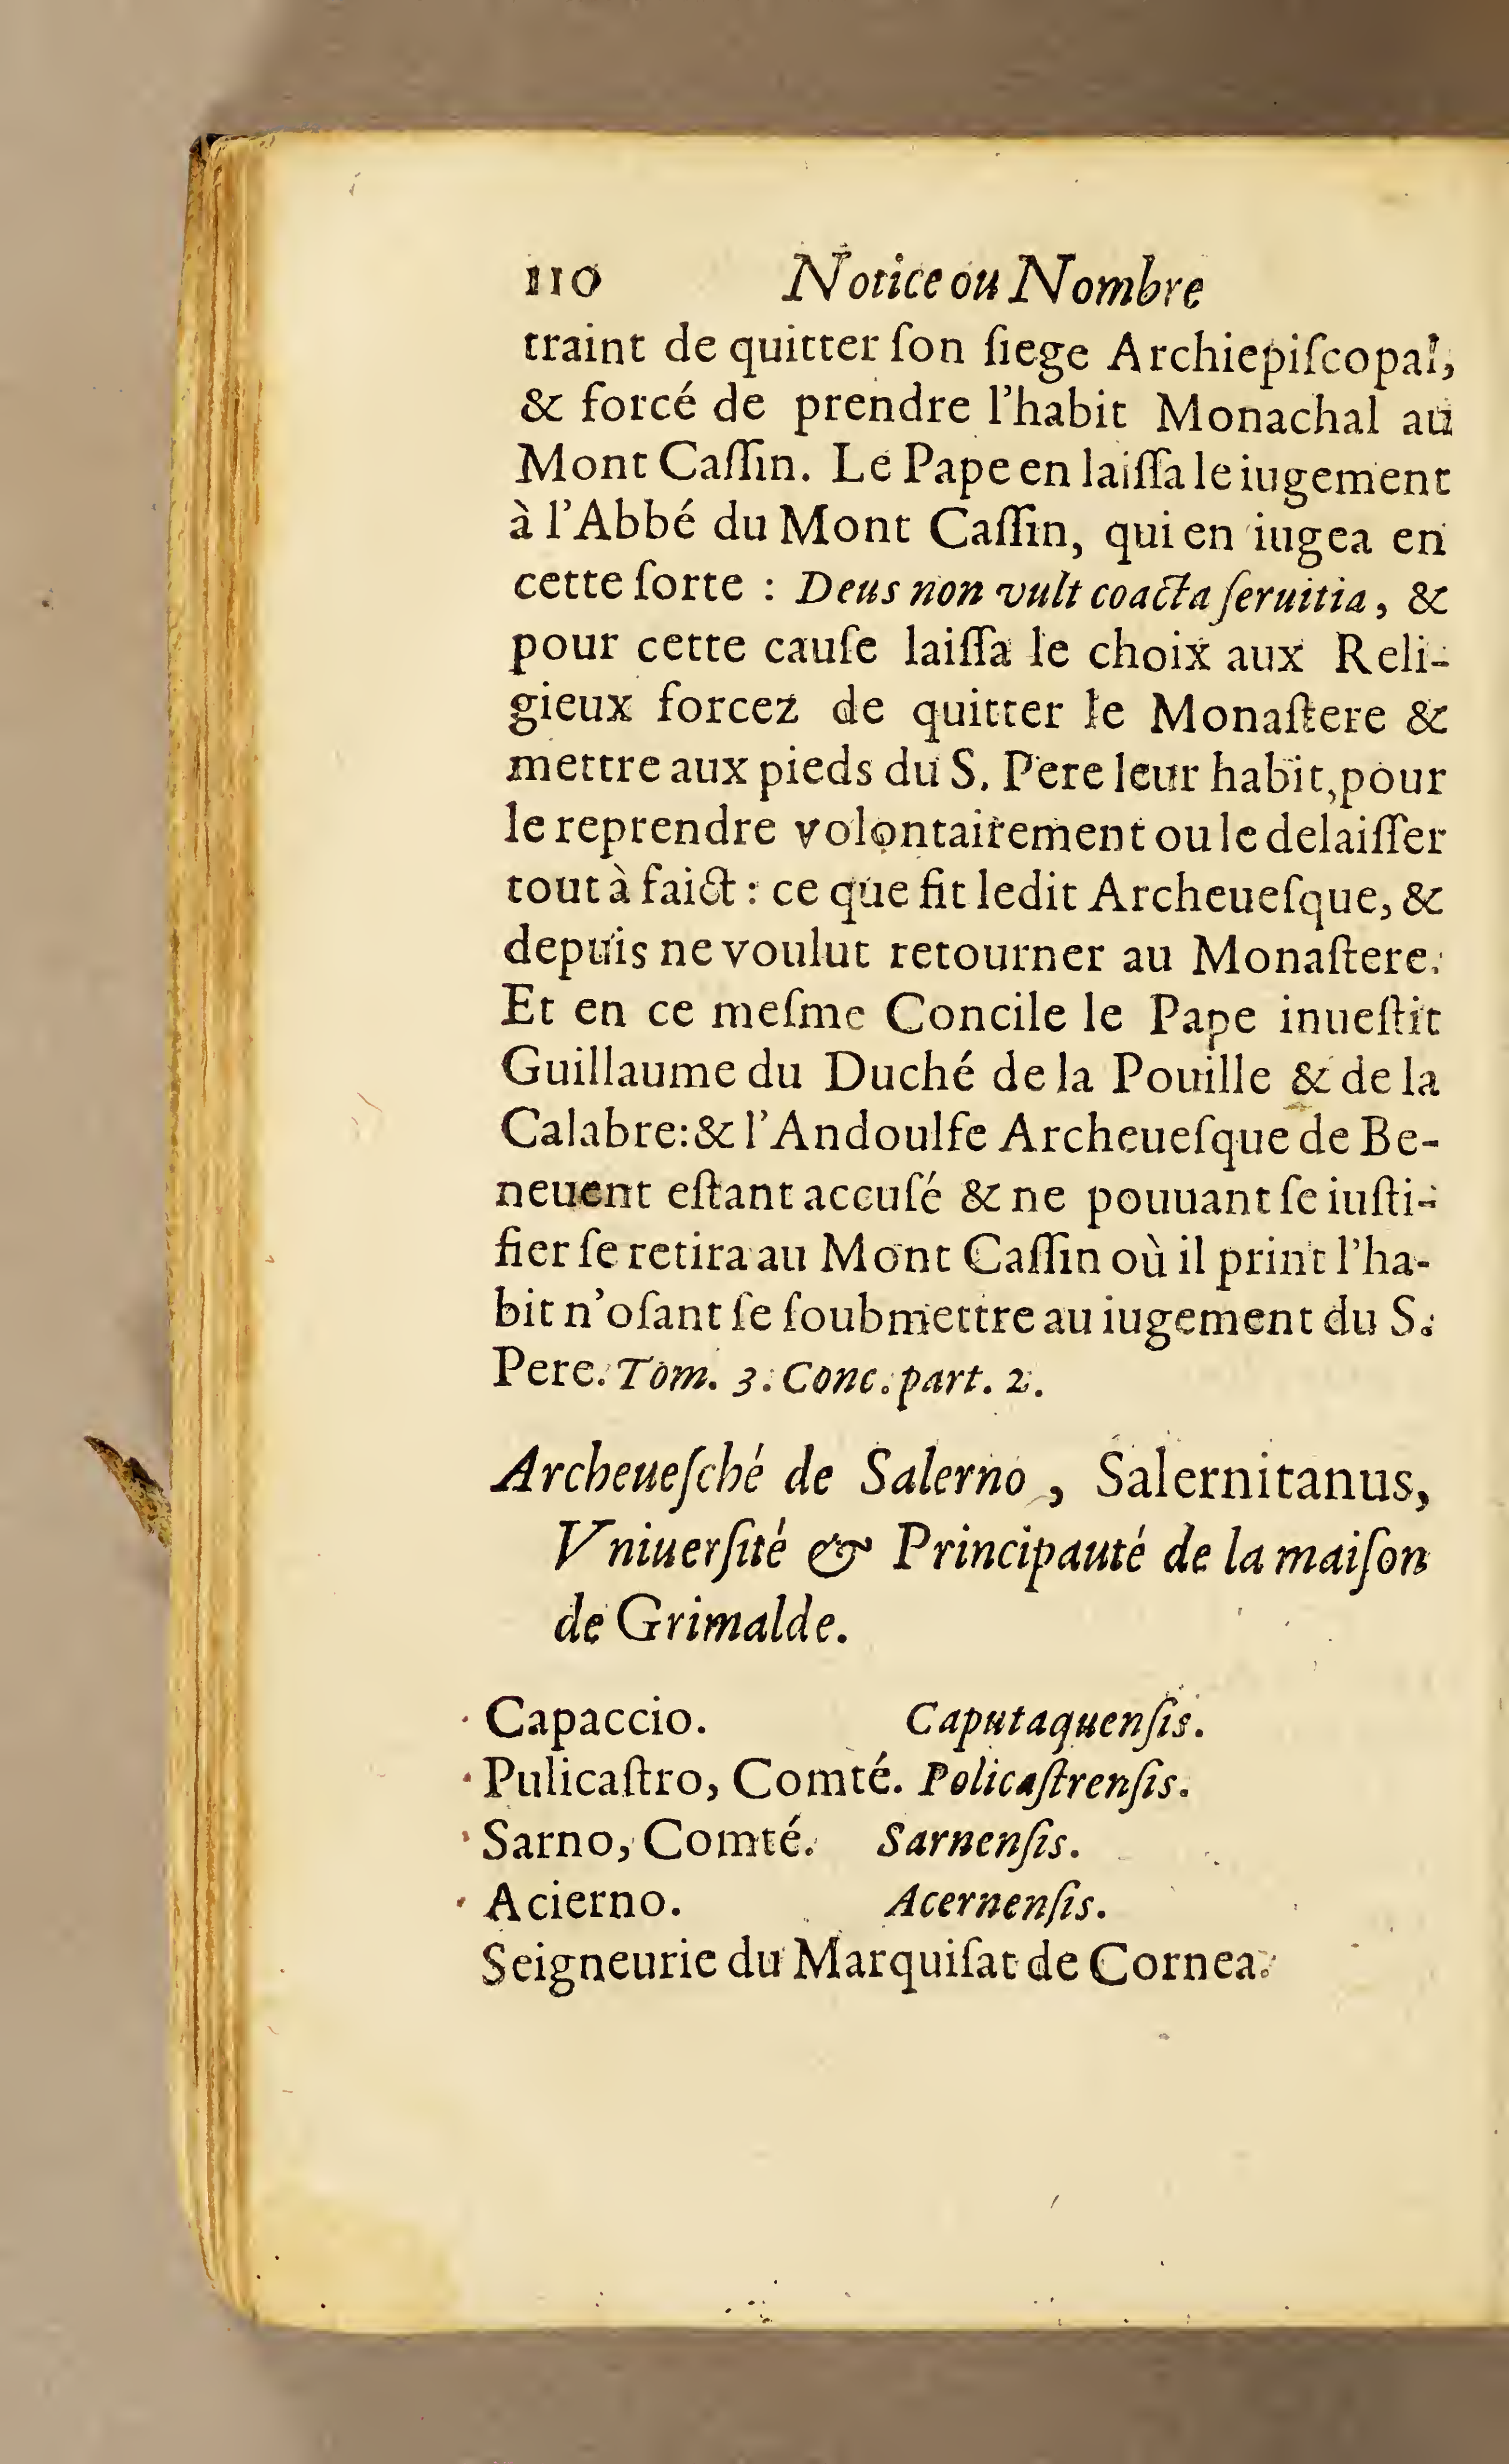 110 Notice ou Nombre
traint de quitter ſon ſiege Archiepiſcopal,
& forcé de prendre l'habit Monachal au
Mont Caſſin. Le Pape en laiſſa le iugement
à l'Abbé du Mont Caſſin, qui en iugea en
cette ſorte : Deus non vult coacta ſeruitia, &
pour cette cauſe laiſſa le choix aux Reli-
gieux forcez de quitter le Monaſtere &
mettre aux pieds du S. Pere leur habit, pour
le reprendre volontairement ou le delaiſſer
tout à faict : ce que fit ledit Archeueſque, &
depuis ne voulut retourner au Monaſtere.
Et en ce meſme Concile le Pape inueſtit
Guillaume du Duché de la Pouille & de la
Calabre: & l'Andoulfe Archeueſque de Be-
neuent eſtant accuſé & ne pouuant ſe iuſti-
fier ſe retira au Mont Caſſin où il print l'ha-
bit n'oſant ſe ſoubmettre au iugement du S.
Pere. Tom. 3. Conc. part. 2.
Archeueſché de Salerno, Salernitanus,
Vniuerſité & Principauté de la maiſon
de Grimalde.
Capaccio. Caputaquenſis.
Pulicaſtro, Comté. Policaſtrenſis.
Sarno, Comté. Sarnenſis.
Acierno. Acernenſis.
Seigneurie du Marquiſat de Cornea.